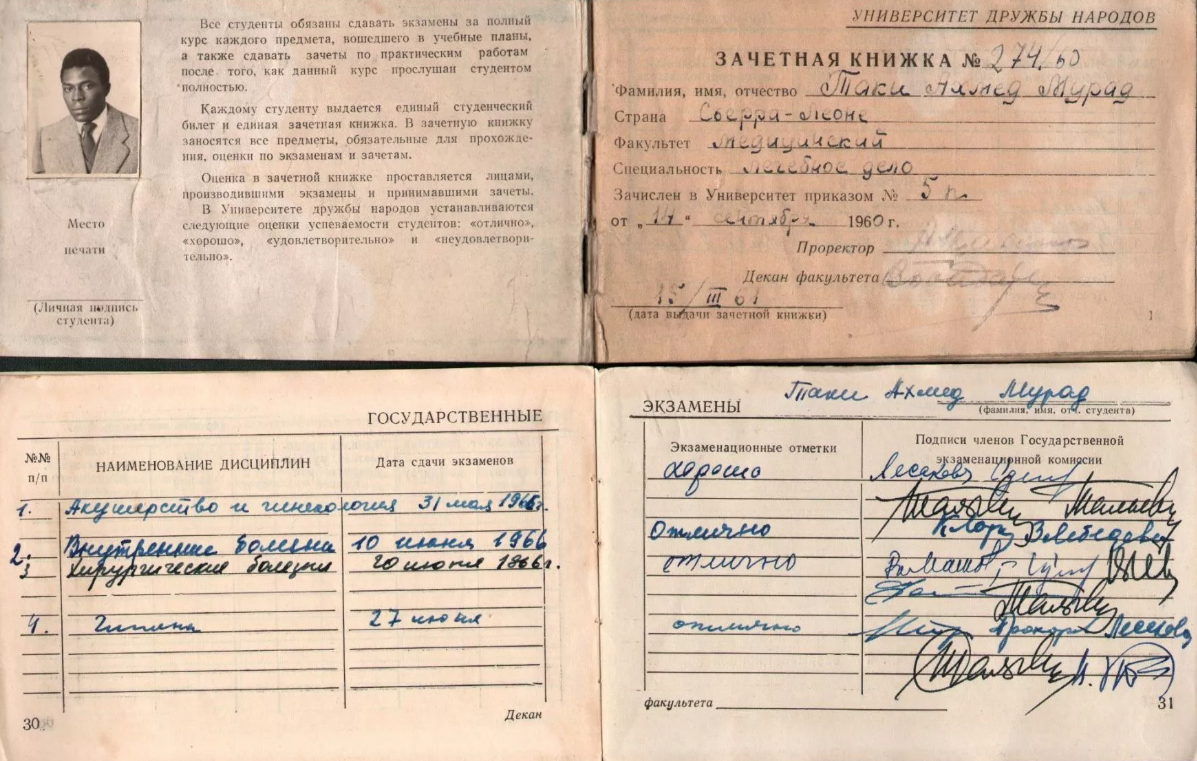 Все студенты обязаны сдавать экзамены за полный
курс каждого предмета, вошедшего в учебные планы,
а также сдавать зачеты по практическим работам
после того, как данный курс прослушан студентом
полностью.
Каждому студенту выдается единый студенческий
билет и единая зачетная книжка. В зачетную книжку
заносятся все предметы, обязательные для прохожде-
ния, оценки по экзаменам и зачетам.
Оценка в зачетной книжке проставляется лицами,
производившими экзамены и принимавшими зачеты.
В Университете дружбы народов устанавливаются
следующие оценки успеваемости студентов: «отлично»,
«хорошо», «удовлетворительно» и «неудовлетвори-
тельно».
Место
печати
(Личная подпись
студента)
УНИВЕРСИТЕТ ДРУЖБЫ НАРОДОВ
ЗАЧЕТНАЯ КНИЖКА № 274/60
Фамилия, имя, отчество Таки Ахмед Мурад
Страна Сьерра-Леоне
Факультет Медицинский
Специальность Лечебное дело
Зачислен в Университет приказом № 5 п
от „14" сентября 1960 г.
Проректор
Декан факультета
15/III 61
(дата выдачи зачетной книжки)
1
ГОСУДАРСТВЕННЫЕ
№№ п/п
НАИМЕНОВАНИЕ ДИСЦИПЛИН
Дата сдачи экзаменов
1. Акушерство и гинекология 31 мая 1966г.
2. Внутренние болезни 10 июня 1966
3 Хирургические болезни 20 июня 1966г.
4. Гигиена 27 июня
30
Декан
Таки Ахмед Мурад
ЭКЗАМЕНЫ
(фамилия, имя, отч. студента)
Экзаменационные отметки
Подписи членов Государственной
экзаменационной комиссии
хорошо
Отлично
отлично
отлично
факультета
31